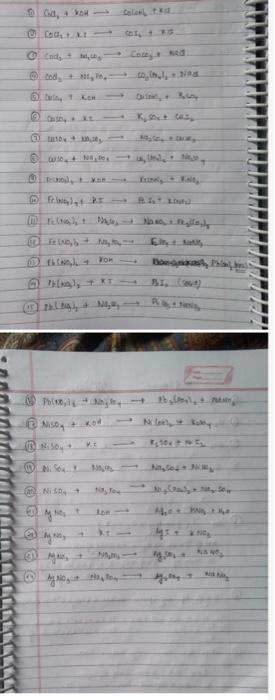 ① CoCl₂ + KOH → Co(OH)₂ + KCl
② CoCl₂ + KI → CoI₂ + KCl
③ CoCl₂ + Na₂CO₃ → CoCO₃ + NaCl
④ CoCl₂ + Na₃PO₄ → Co₃(PO₄)₂ + NaCl
⑤ CuSO₄ + KOH → Cu(OH)₂ + K₂SO₄
⑥ CuSO₄ + KI → K₂SO₄ + CuI₂
⑦ CuSO₄ + Na₂CO₃ → Na₂SO₄ + CuCO₃
⑧ CuSO₄ + Na₃PO₄ → Cu₃(PO₄)₂ + Na₂SO₄
⑨ Fe(NO₃)₃ + KOH → Fe(OH)₃ + KNO₃
⑩ Fe(NO₃)₃ + KI →
⑪ Fe(NO₃)₃ + Na₂CO₃ → NaNO₃ + Fe₂(CO₃)₃
⑫ Fe(NO₃)₃ + Na₃PO₄ → + NaNO₃
⑬ Pb(NO₃)₂ + KOH →
⑭ Pb(NO₃)₂ + KI → PbI₂
⑮ Pb(NO₃)₂ + Na₂CO₃ → + NaNO₃
⑯ Pb(NO₃)₂ + Na₃PO₄ → Pb₃(PO₄)₂ + NaNO₃
⑰ NiSO₄ + KOH → Ni(OH)₂ + K₂SO₄
⑱ NiSO₄ + KI → K₂SO₄ + NiI₂
⑲ NiSO₄ + Na₂CO₃ → Na₂SO₄ + NiCO₃
⑳ NiSO₄ + Na₃PO₄ → Ni₃(PO₄)₂ + Na₂SO₄
㉑ AgNO₃ + KOH → Ag₂O + KNO₃ + H₂O
㉒ AgNO₃ + KI → AgI + KNO₃
㉓ AgNO₃ + Na₂CO₃ → Ag₂CO₃ + NaNO₃
㉔ AgNO₃ + Na₃PO₄ → Ag₃PO₄ + NaNO₃